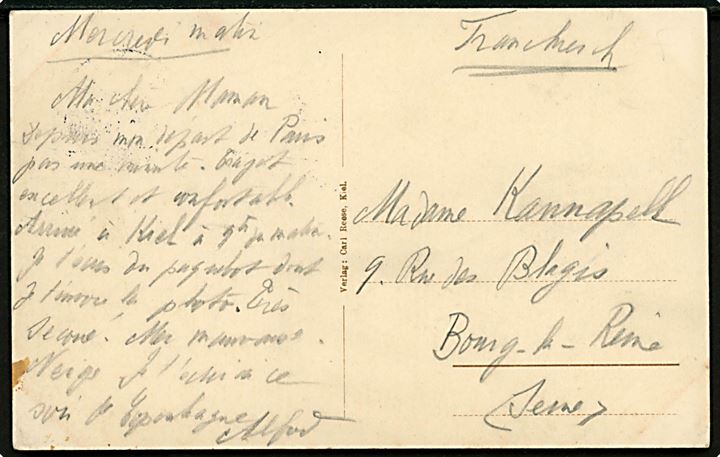 Mercredi matin
Ma chère Maman
Depuis mon départ de Paris
pas une minute. Trajet
excellent et confortable.
Arrivé à Kiel à 9h du matin.
Je t'écris du paquebot dont
je t'envoie la photo. Très
secoué. Mer mauvaise.
Neige. Je t'écrirai ce
soir de Copenhague
Alfred
Verlag: Carl Reese, Kiel.
Frankreich
Madame Kannapell
9. Rue des Blagis
Bourg-la-Reine
(Seine)